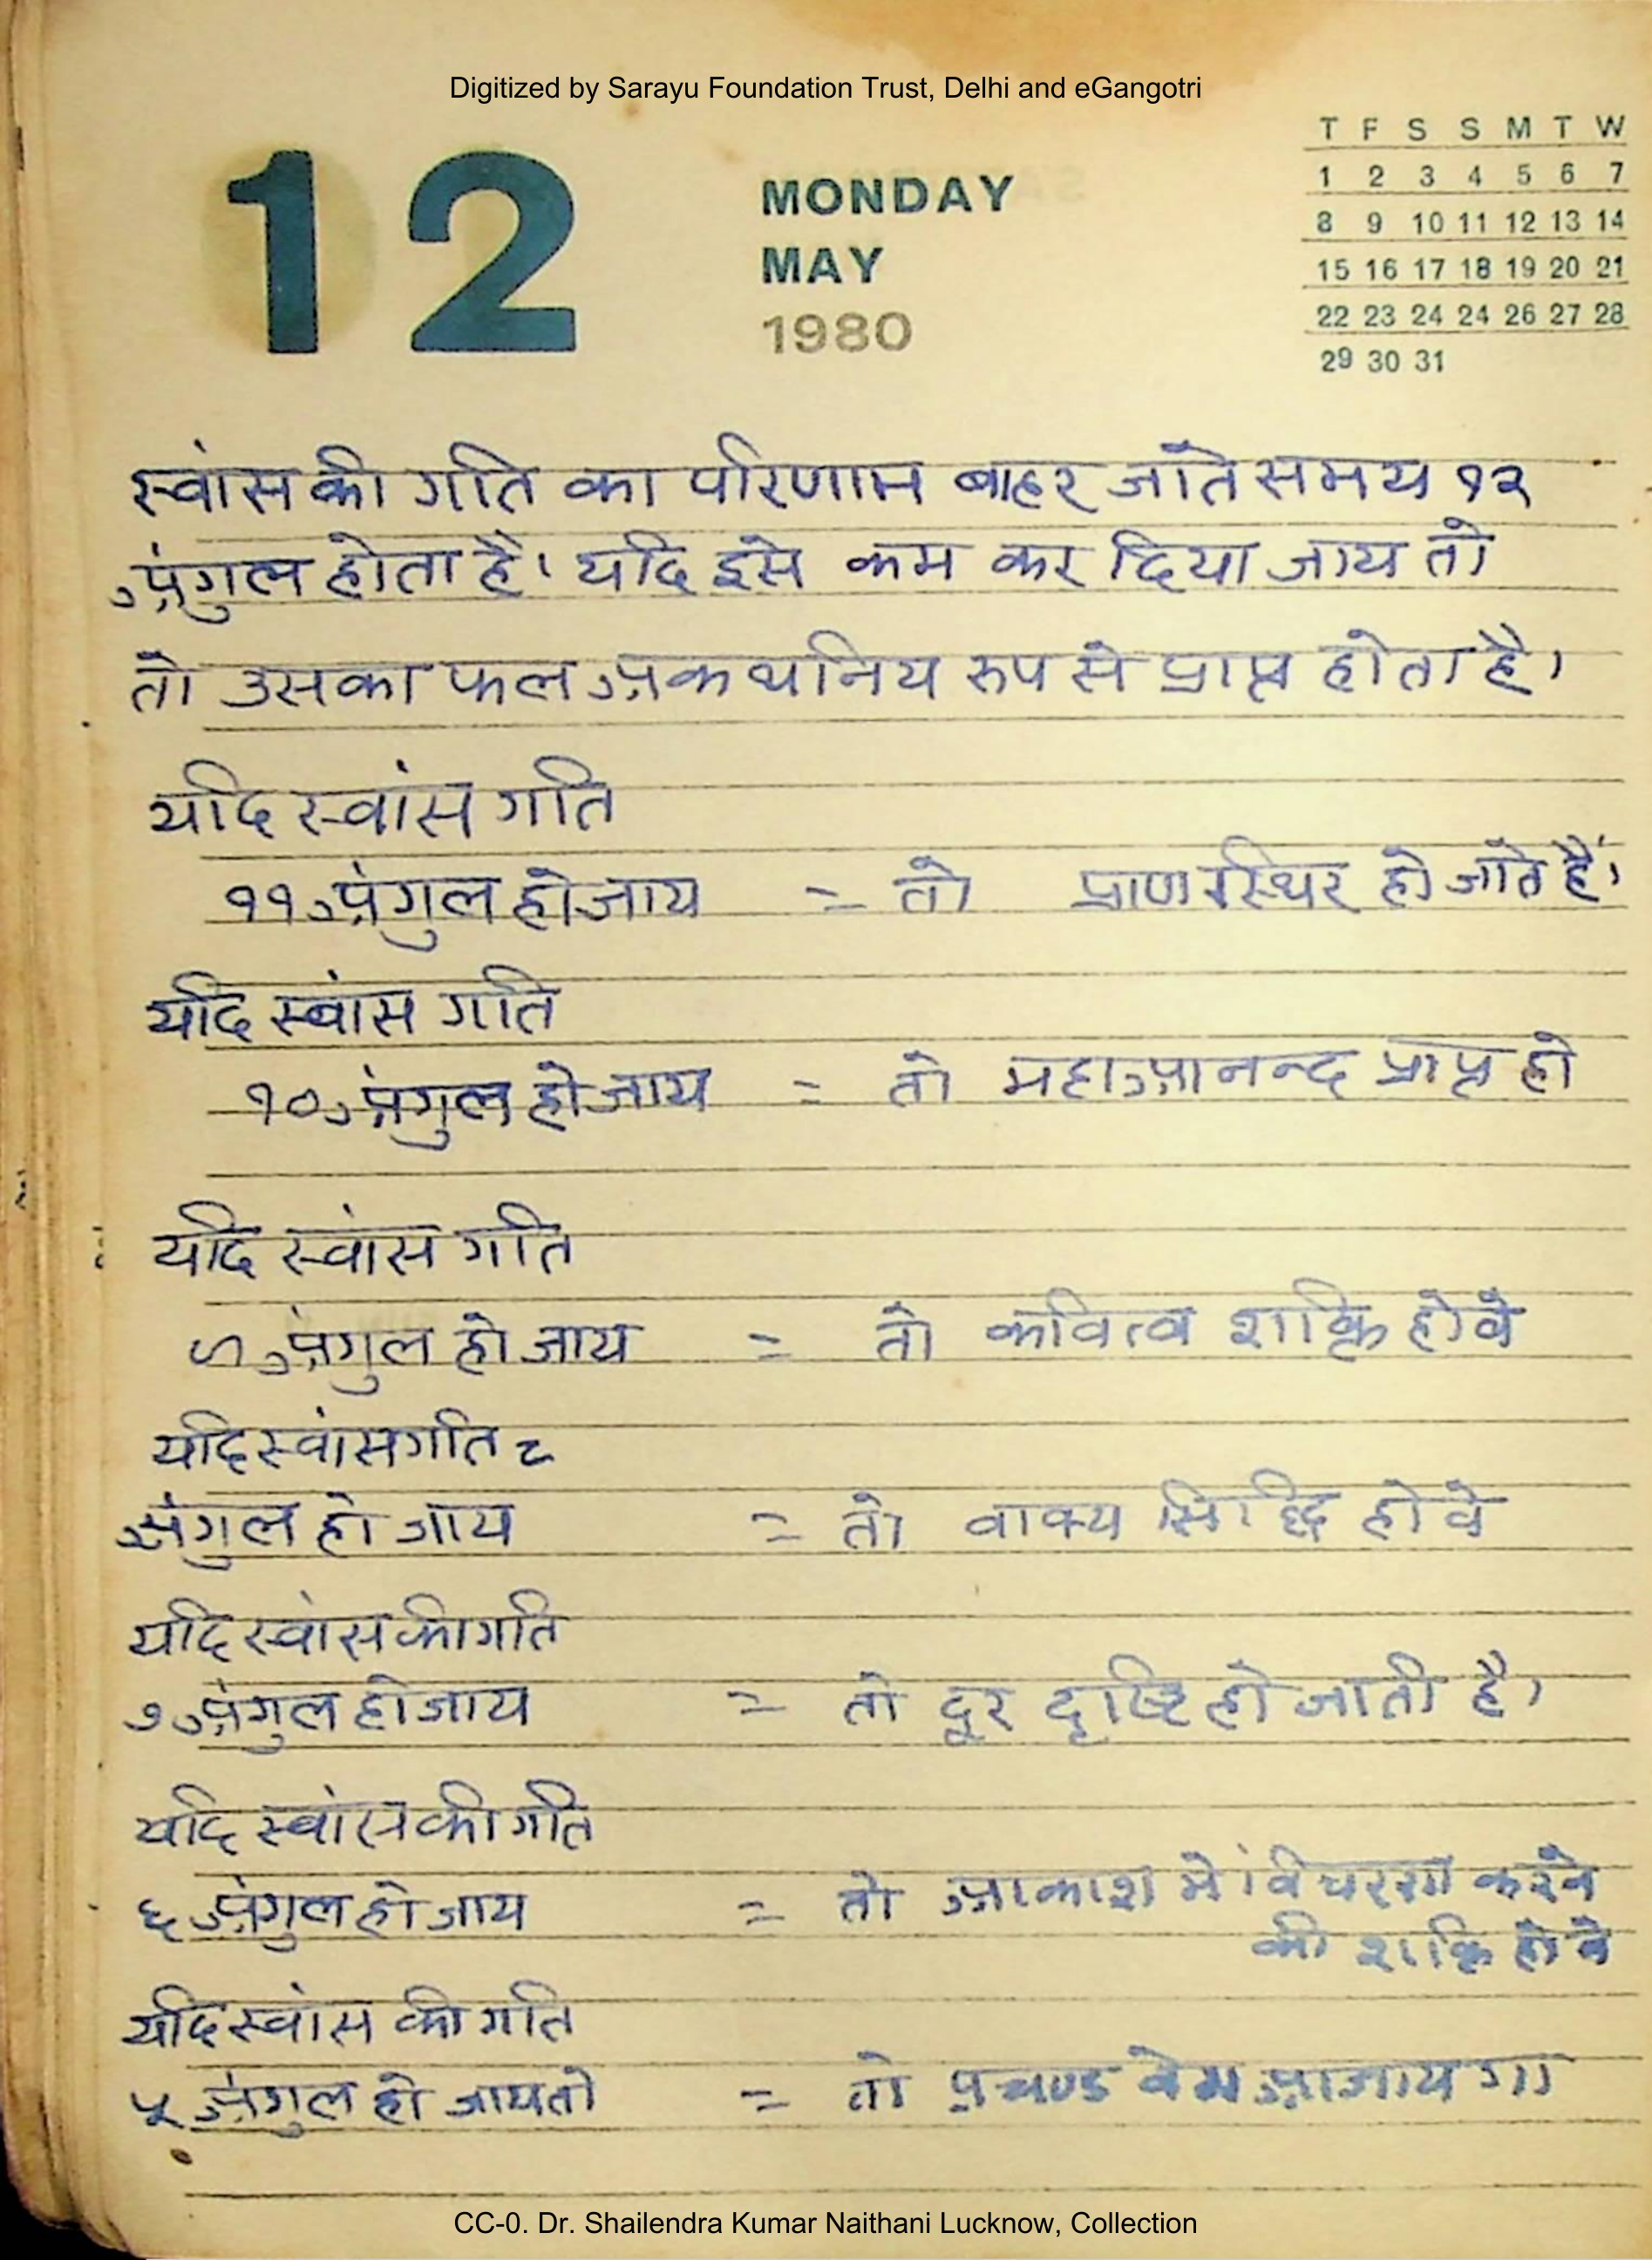 Digitized by Sarayu Foundation Trust, Delhi and eGangotri
12
MONDAY
MAY
1980
T F S S M T W
1 2 3 4 5 6 7
8 9 10 11 12 13 14
15 16 17 18 19 20 21
22 23 24 24 26 27 28
29 30 31
स्वांस की गति का परिणाम बाहर जाते समय १२
अंगुल होता है। यदि इसे कम कर दिया जाय तो
तो उसका फल अकथनिय रुप से प्राप्त होता है।
यदि स्वांस गति
११ अंगुल हो जाय = तो प्राण स्थिर हो जाते हैं।
यदि स्वांस गति
१० अंगुल हो जाय = तो महाआनन्द प्राप्त हो
यदि स्वांस गति
९ अंगुल हो जाय = तो कवित्व शक्ति होवे
यदि स्वांस गति ८
अंगुल हो जाय = तो वाक्य सिद्धि होवे
यदि स्वांस की गति
७ अंगुल हो जाय = तो दूर दृष्टि हो जाती है।
यदि स्वांस की गति
६ अंगुल हो जाय = तो आकाश में विचरण करने
की शक्ति होवे
यदि स्वांस की गति
५ अंगुल हो जाय तो = तो प्रचण्ड वेग आजायगा
CC-0. Dr. Shailendra Kumar Naithani Lucknow, Collection